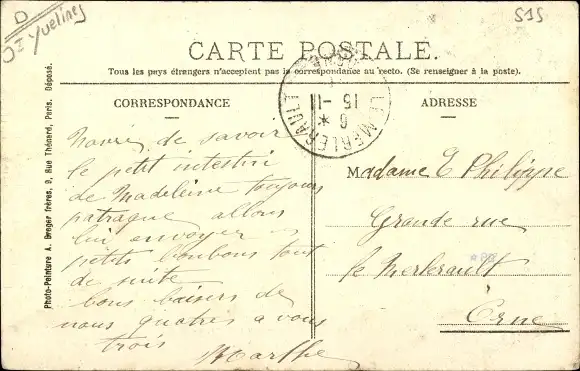 D
OI Yvelines
515
CARTE POSTALE.
Tous les pays étrangers n'acceptent pas la correspondance au recto. (Se renseigner à la poste).
CORRESPONDANCE
ADRESSE
Photo-Peinture A. Breger frères, 9, Rue Thénard, Paris. Déposé.
LE MERLERAULT
15 -11
6
*
Navrée de savoir
le petit intestin
de Madeleine toujours
patraque allons
lui envoyer
petits bonbons tout
de suite
bons baisers de
nous quatres a vous
trois
Marthe
Madame E Philippe
Grande rue
le Merlerault
Orne